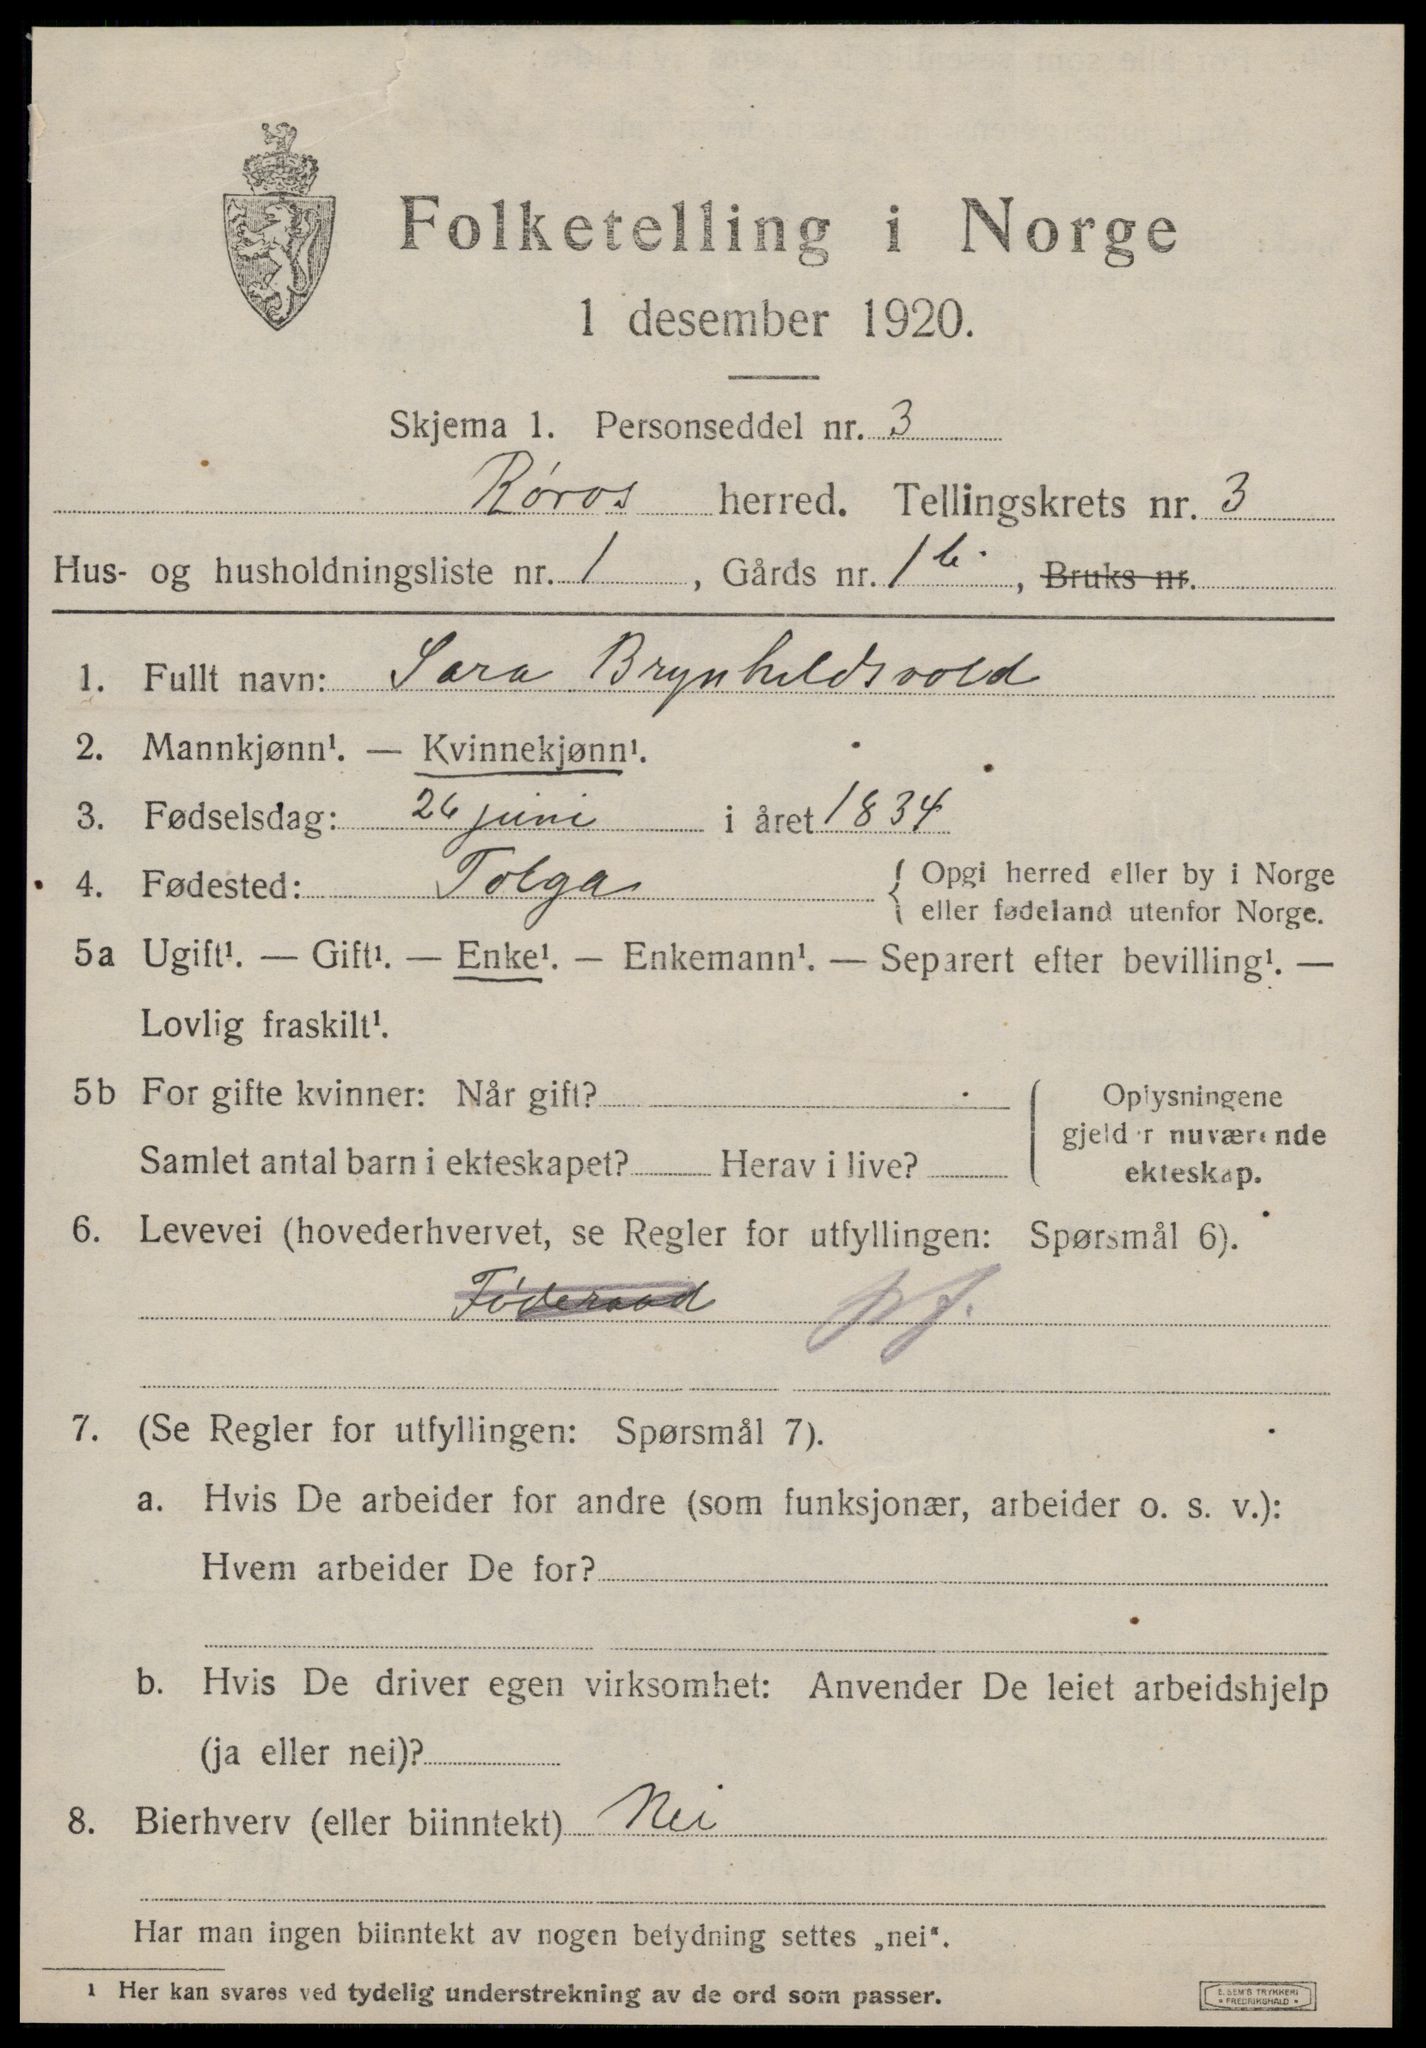 Folketelling i Norge
1 desember 1920.
Skjema 1. Personseddel nr. 3
Røros herred. Tellingskrets nr. 3
Hus- og husholdningsliste nr. 1, Gårds nr. 1 b., Bruks nr.
1. Fullt navn: Sara Brynhildsvold
2. Mannkjønn¹. — Kvinnekjønn¹.
3. Fødselsdag: 26 juni i året 1834
4. Fødested: Tolga { Opgi herred eller by i Norge
eller fødeland utenfor Norge.
5a Ugift¹. — Gift¹. — Enke¹. — Enkemann¹. — Separert efter bevilling¹. —
Lovlig fraskilt¹.
5b For gifte kvinner: Når gift?
Samlet antal barn i ekteskapet? Herav i live?
Oplysningene
gjelder nuværende
ekteskap.
6. Levevei (hovederhvervet, se Regler for utfyllingen: Spørsmål 6).
Føderaad
7. (Se Regler for utfyllingen: Spørsmål 7).
a. Hvis De arbeider for andre (som funksjonær, arbeider o. s. v.):
Hvem arbeider De for?
b. Hvis De driver egen virksomhet: Anvender De leiet arbeidshjelp
(ja eller nei)?
8. Bierhverv (eller biinntekt) Nei
Har man ingen biinntekt av nogen betydning settes „nei“.
1 Her kan svares ved tydelig understrekning av de ord som passer.
E. SEM'S TRYKKERI
• FREDRIKSHALD •